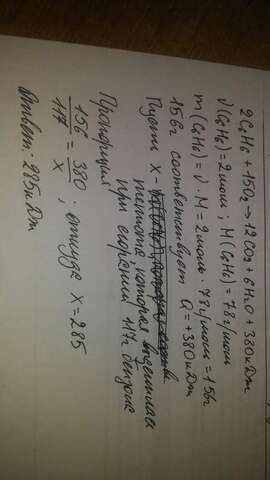 2C6H6 + 15O2 → 12CO2 + 6H2O + 380кДж
ν(C6H6) = 2моль ; M(C6H6) = 78г/моль
m(C6H6) = ν · M = 2моль · 78г/моль = 156г
156г соответствует Q = +380кДж
Пусть x -
теплота которая выделилась
при сгорании 117г бензола
Пропорция
156/117 = 380/x ; откуда x = 285
Ответ: 285кДж